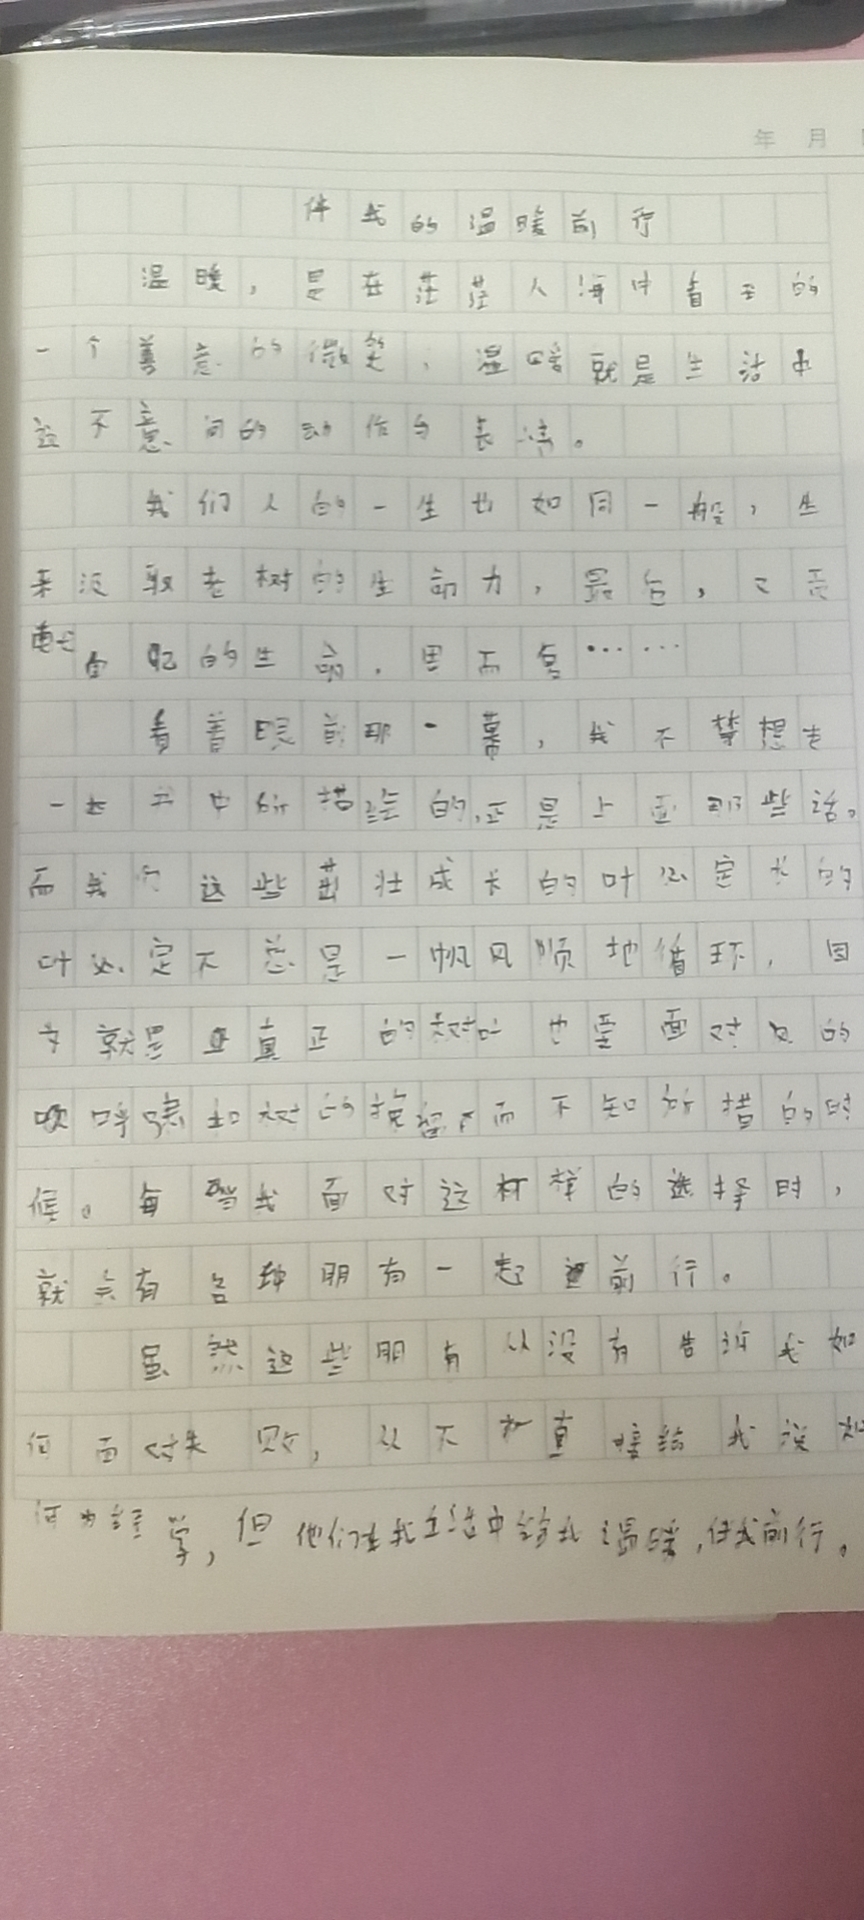 年 月
伴我的温暖前行
温暖，是在茫茫人海中看至的
一个善意的微笑，温暖就是生活中
这不意间的动作与表情。
我们人的一生也如同一般，生
来汲取老树的生命力，最后，又
自己的生命，周而复……
看着眼前那一幕，我不禁想
书中所描绘的，正是上面那些话。
而我们这些茁壮成长的叶必定长的
叶必定不总是一帆风顺地循环，因
为就是真正的树叶也要面对风的
呼唤和树的挽留而不知所措的时
候。每当我面对这样的选择时，
就会有各种朋有一起前行。
虽然这些朋有从没有告诉我如
何面对失败，从不直接给我说如
何为学，但他们在我生活中给我温暖，伴我前行。